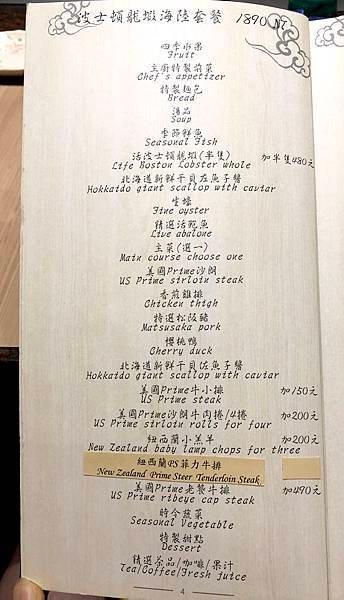 波士頓龍蝦海陸套餐 1890 NT
四季水果
Fruit
主廚特製前菜
Chef's appetizer
特製麵包
Bread
湯品
Soup
季節鮮魚
Seasonal Fish
活波士頓龍蝦(半隻) 加半隻480元
Life Boston Lobster whole
北海道新鮮干貝左魚子醬
Hokkaido giant scallop with caviar
生蠔
Fine oyster
精選活鮑魚
Live abalone
主菜(選一)
Main course choose one
美國Prime沙朗
US Prime sirloin steak
香煎雞排
Chicken thigh
特選松阪豬
Matsusaka pork
櫻桃鴨
Cherry duck
北海道新鮮干貝左魚子醬
Hokkaido giant scallop with caviar
美國Prime牛小排 加150元
US Prime steak
美國Prime沙朗牛肉捲/4捲 加200元
US Prime sirloin rolls for four
紐西蘭小羔羊 加200元
New Zealand baby lamp chops for three
紐西蘭PS菲力牛排
New Zealand Prime Steer Tenderloin Steak
美國Prime老饕牛排 加490元
US Prime ribeye cap steak
時令蔬菜
Seasonal Vegetable
特製甜點
Dessert
精選茶品/咖啡/果汁
Tea/Coffee/Fresh juice
4